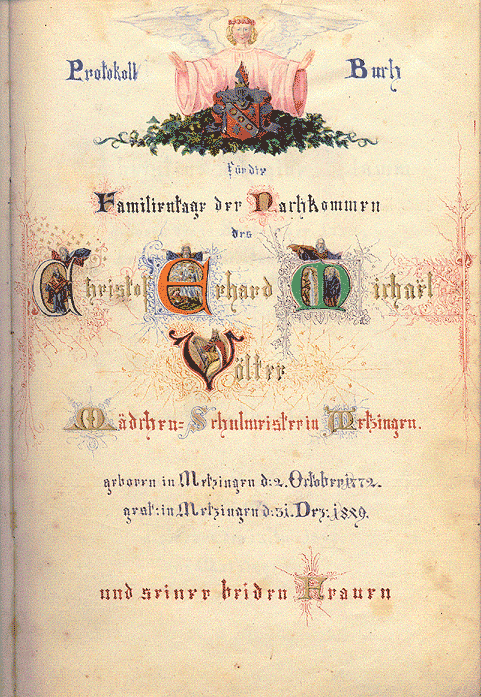 Protokoll Buch
für die
Familientage der Nachkommen
des
Christof Erhard Michael
Völter
Mädchen= Schulmeister in Metzingen.
geboren in Metzingen d: 2. October 1772.
gest: in Metzingen d: 31. Dez:
und seiner beiden Frauen